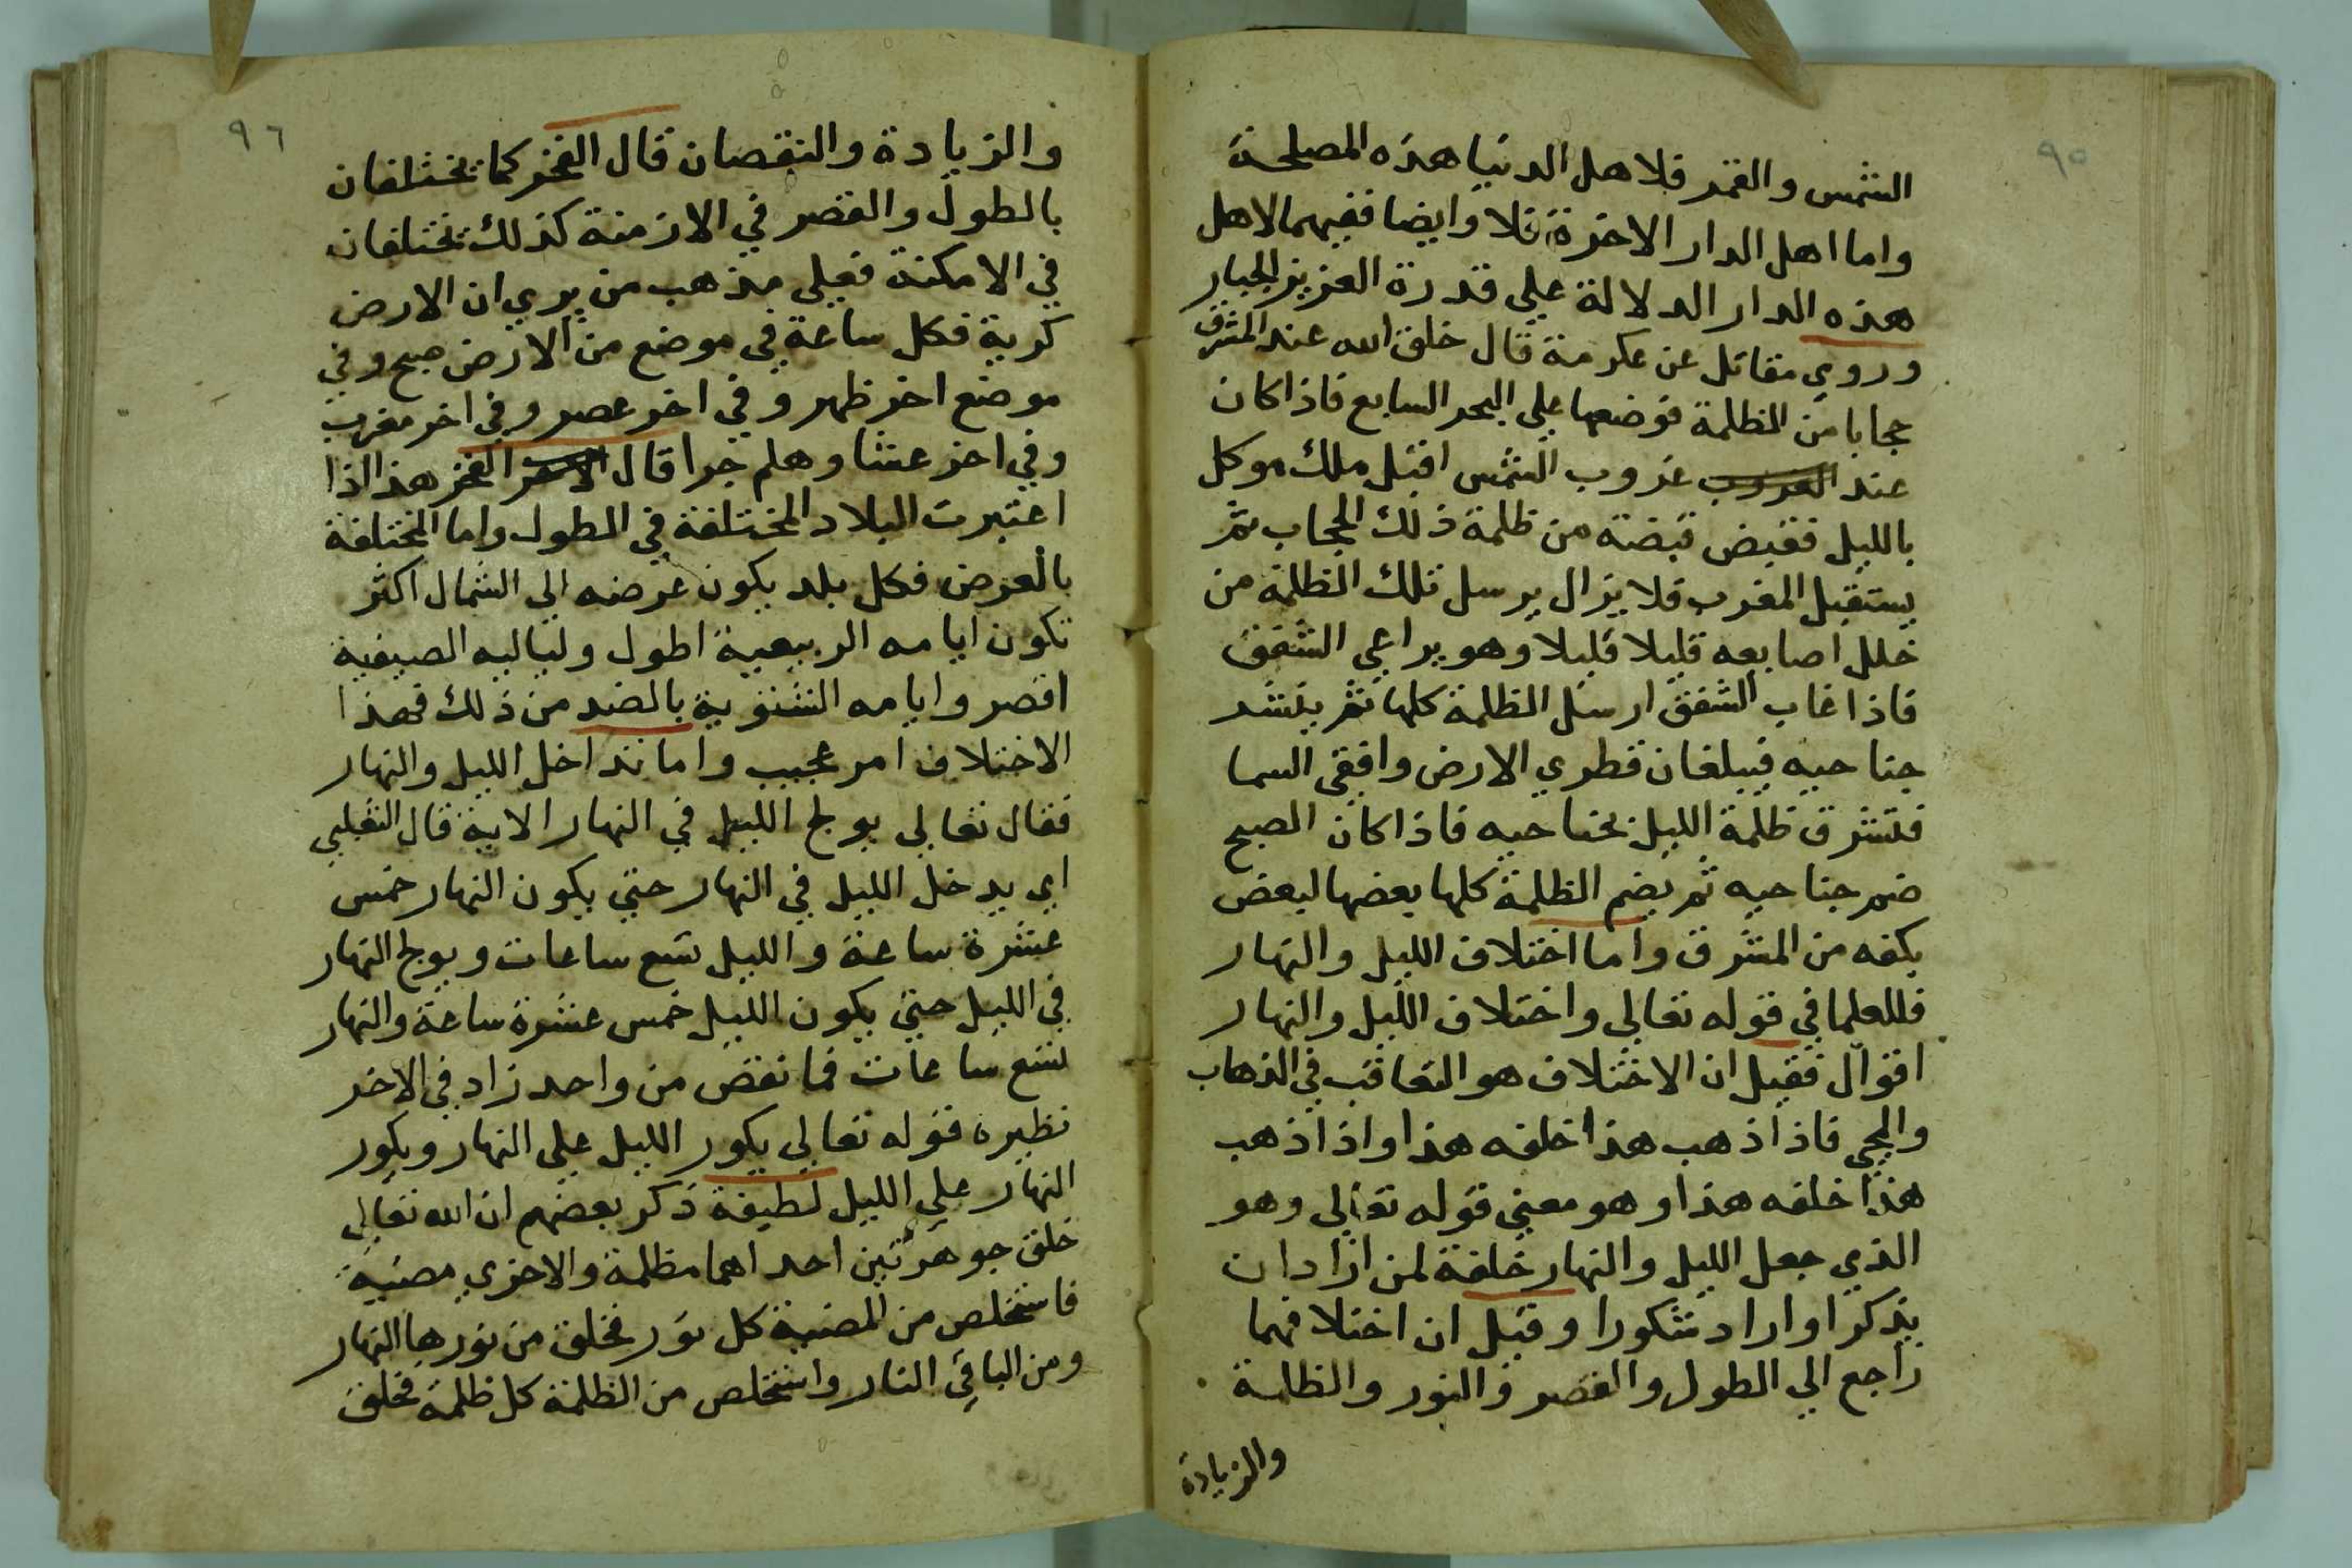 ٩٥
الشمس والقمر فلاهل الدنيا هذه المصلحة
واما اهل الدار الاخرة فلا وايضا ففيهما لاهل
هذه الدار الدلالة علي قدرة العزيز الجبار
وروي مقاتل عن عكرمة قال خلق الله عند المشرق
حجابا من الظلمة فوضعها علي البحر السابع فاذا كان
عند الغروب غروب الشمس اقبل ملك موكل
بالليل فقبض قبضة من ظلمة ذلك الحجاب ثم
يستقبل المغرب فلا يزال يرسل تلك الظلمة من
خلل اصابعه قليلا قليلا وهو يراعي الشفق
فاذا غاب الشفق ارسل الظلمة كلها ثم ينشد
جناحيه فيبلغان قطري الارض وافقي السما
فتشرق ظلمة الليل بجناحيه فاذا كان الصبح
ضم جناحيه ثم يضم الظلمة كلها بعضها لبعض
بكفه من المشرق واما اختلاف الليل والنهار
فللعلما في قوله تعالي واختلاف الليل والنهار
اقوال فقيل ان الاختلاف هو التعاقب في الذهاب
والمجي فاذا ذهب هذا خلفه هذا واذا ذهب
هذا خلفه هذا وهو معني قوله تعالي وهو
الذي جعل الليل والنهار خلفة لمن اراد ان
يذكر او اراد شكورا وقيل ان اختلافهما
راجع الي الطول والقصر والنور والظلمة
والزيادة
٩٦
والزيادة والنقصان قال الفخر كما يختلفان
بالطول والقصر في الازمنة كذلك يختلفان
في الامكنة فعلي مذهب من يري ان الارض
كرية فكل ساعة في موضع من الارض صبح وفي
موضع اخر ظهر وفي اخر عصر وفي اخر مغرب
وفي اخر عشا وهلم جرا قال الفخر هذا اذا
اعتبرت البلاد المختلفة في الطول واما المختلفة
بالعرض فكل بلد يكون عرضه الي الشمال اكثر
تكون ايامه الربيعية اطول ولياليه الصيفية
اقصر وايامه الشتوية بالضد من ذلك فهذا
الاختلاف امر عجيب واما تداخل الليل والنهار
فقال تعالي يولج الليل في النهار الاية قال الثعلبي
اي يدخل الليل في النهار حتي يكون النهار خمس
عشرة ساعة والليل تسع ساعات ويولج النهار
في الليل حتي يكون الليل خمس عشرة ساعة والنهار
تسع ساعات فما نقص من واحد زاد في الاخر
نظيره قوله تعالي يكور الليل علي النهار ويكور
النهار علي الليل لطيفة ذكر بعضهم ان الله تعالي
خلق جوهرتين احداهما مظلمة والاخري مضيية
فاستخلص من المضيية كل نور فخلق من نورها النهار
ومن الباقي النار واستخلص من الظلمة كل ظلمة فخلق